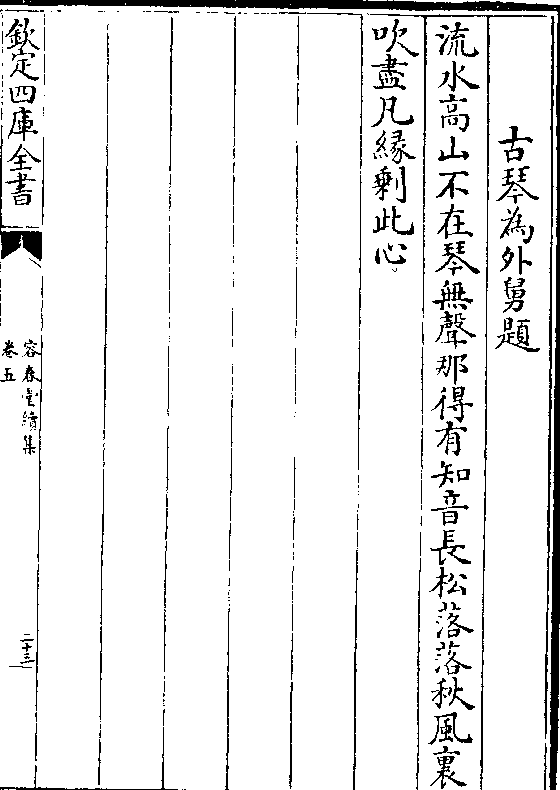 古琴為外舅題
流水高山不在琴無聲那得有知音長松落落秋風裏
吹盡凡緣剩此心
欽定四庫全書
容春堂續集
卷五
二十三